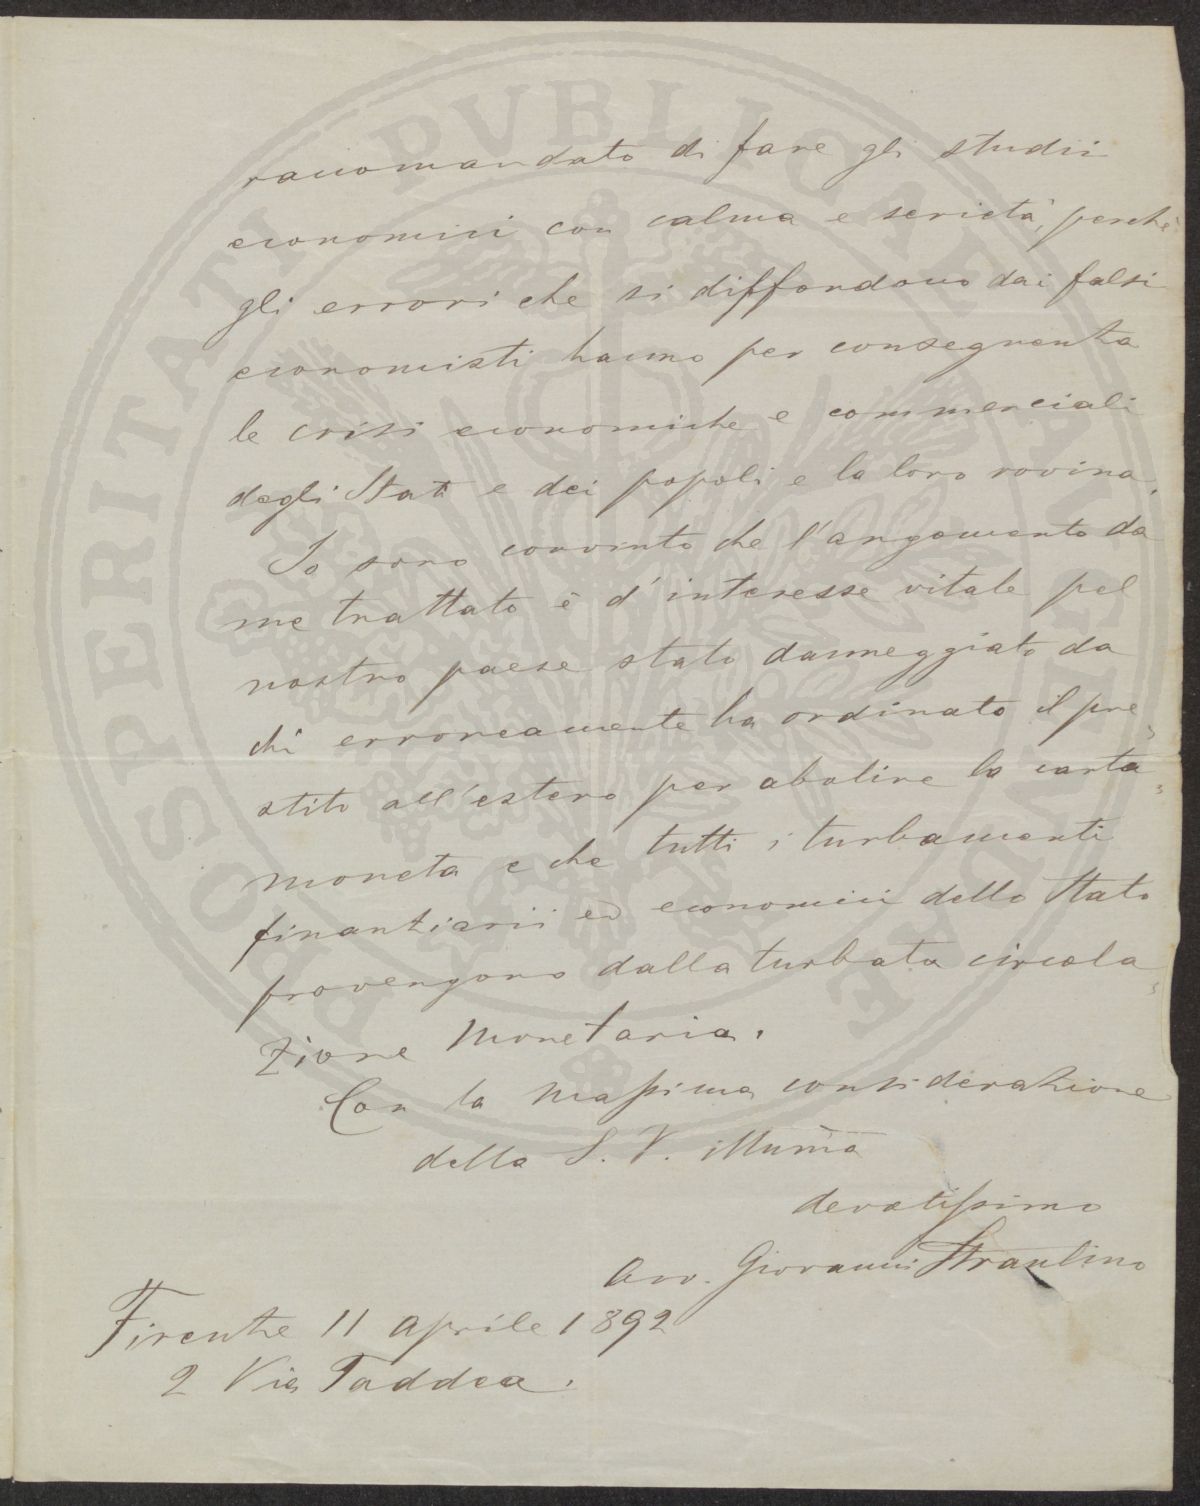 raccomandato di fare gli studii
economici con calma e serietà, perchè
gli errori che si diffondono dai falsi
economisti hanno per conseguenza
le crisi economiche e commerciali
degli Stati e dei popoli e la loro rovina.
Io sono convinto che l'argomento da
me trattato è d'interesse vitale pel
nostro paese stato danneggiato da
chi erroneamente ha ordinato il pre=
stito all'estero per abolire la carta=
moneta e che tutti i turbamenti
finanziarii ed economici dello Stato
provengono dalla turbata circola=
zione monetaria.
Con la massima considerazione
della S. V. illuma
devotissimo
Avv. Giovanni Straulino
Firenze 11 aprile 1892
2 Via Taddea.
PROSPERITATI PVBLICAE AVGENDAE